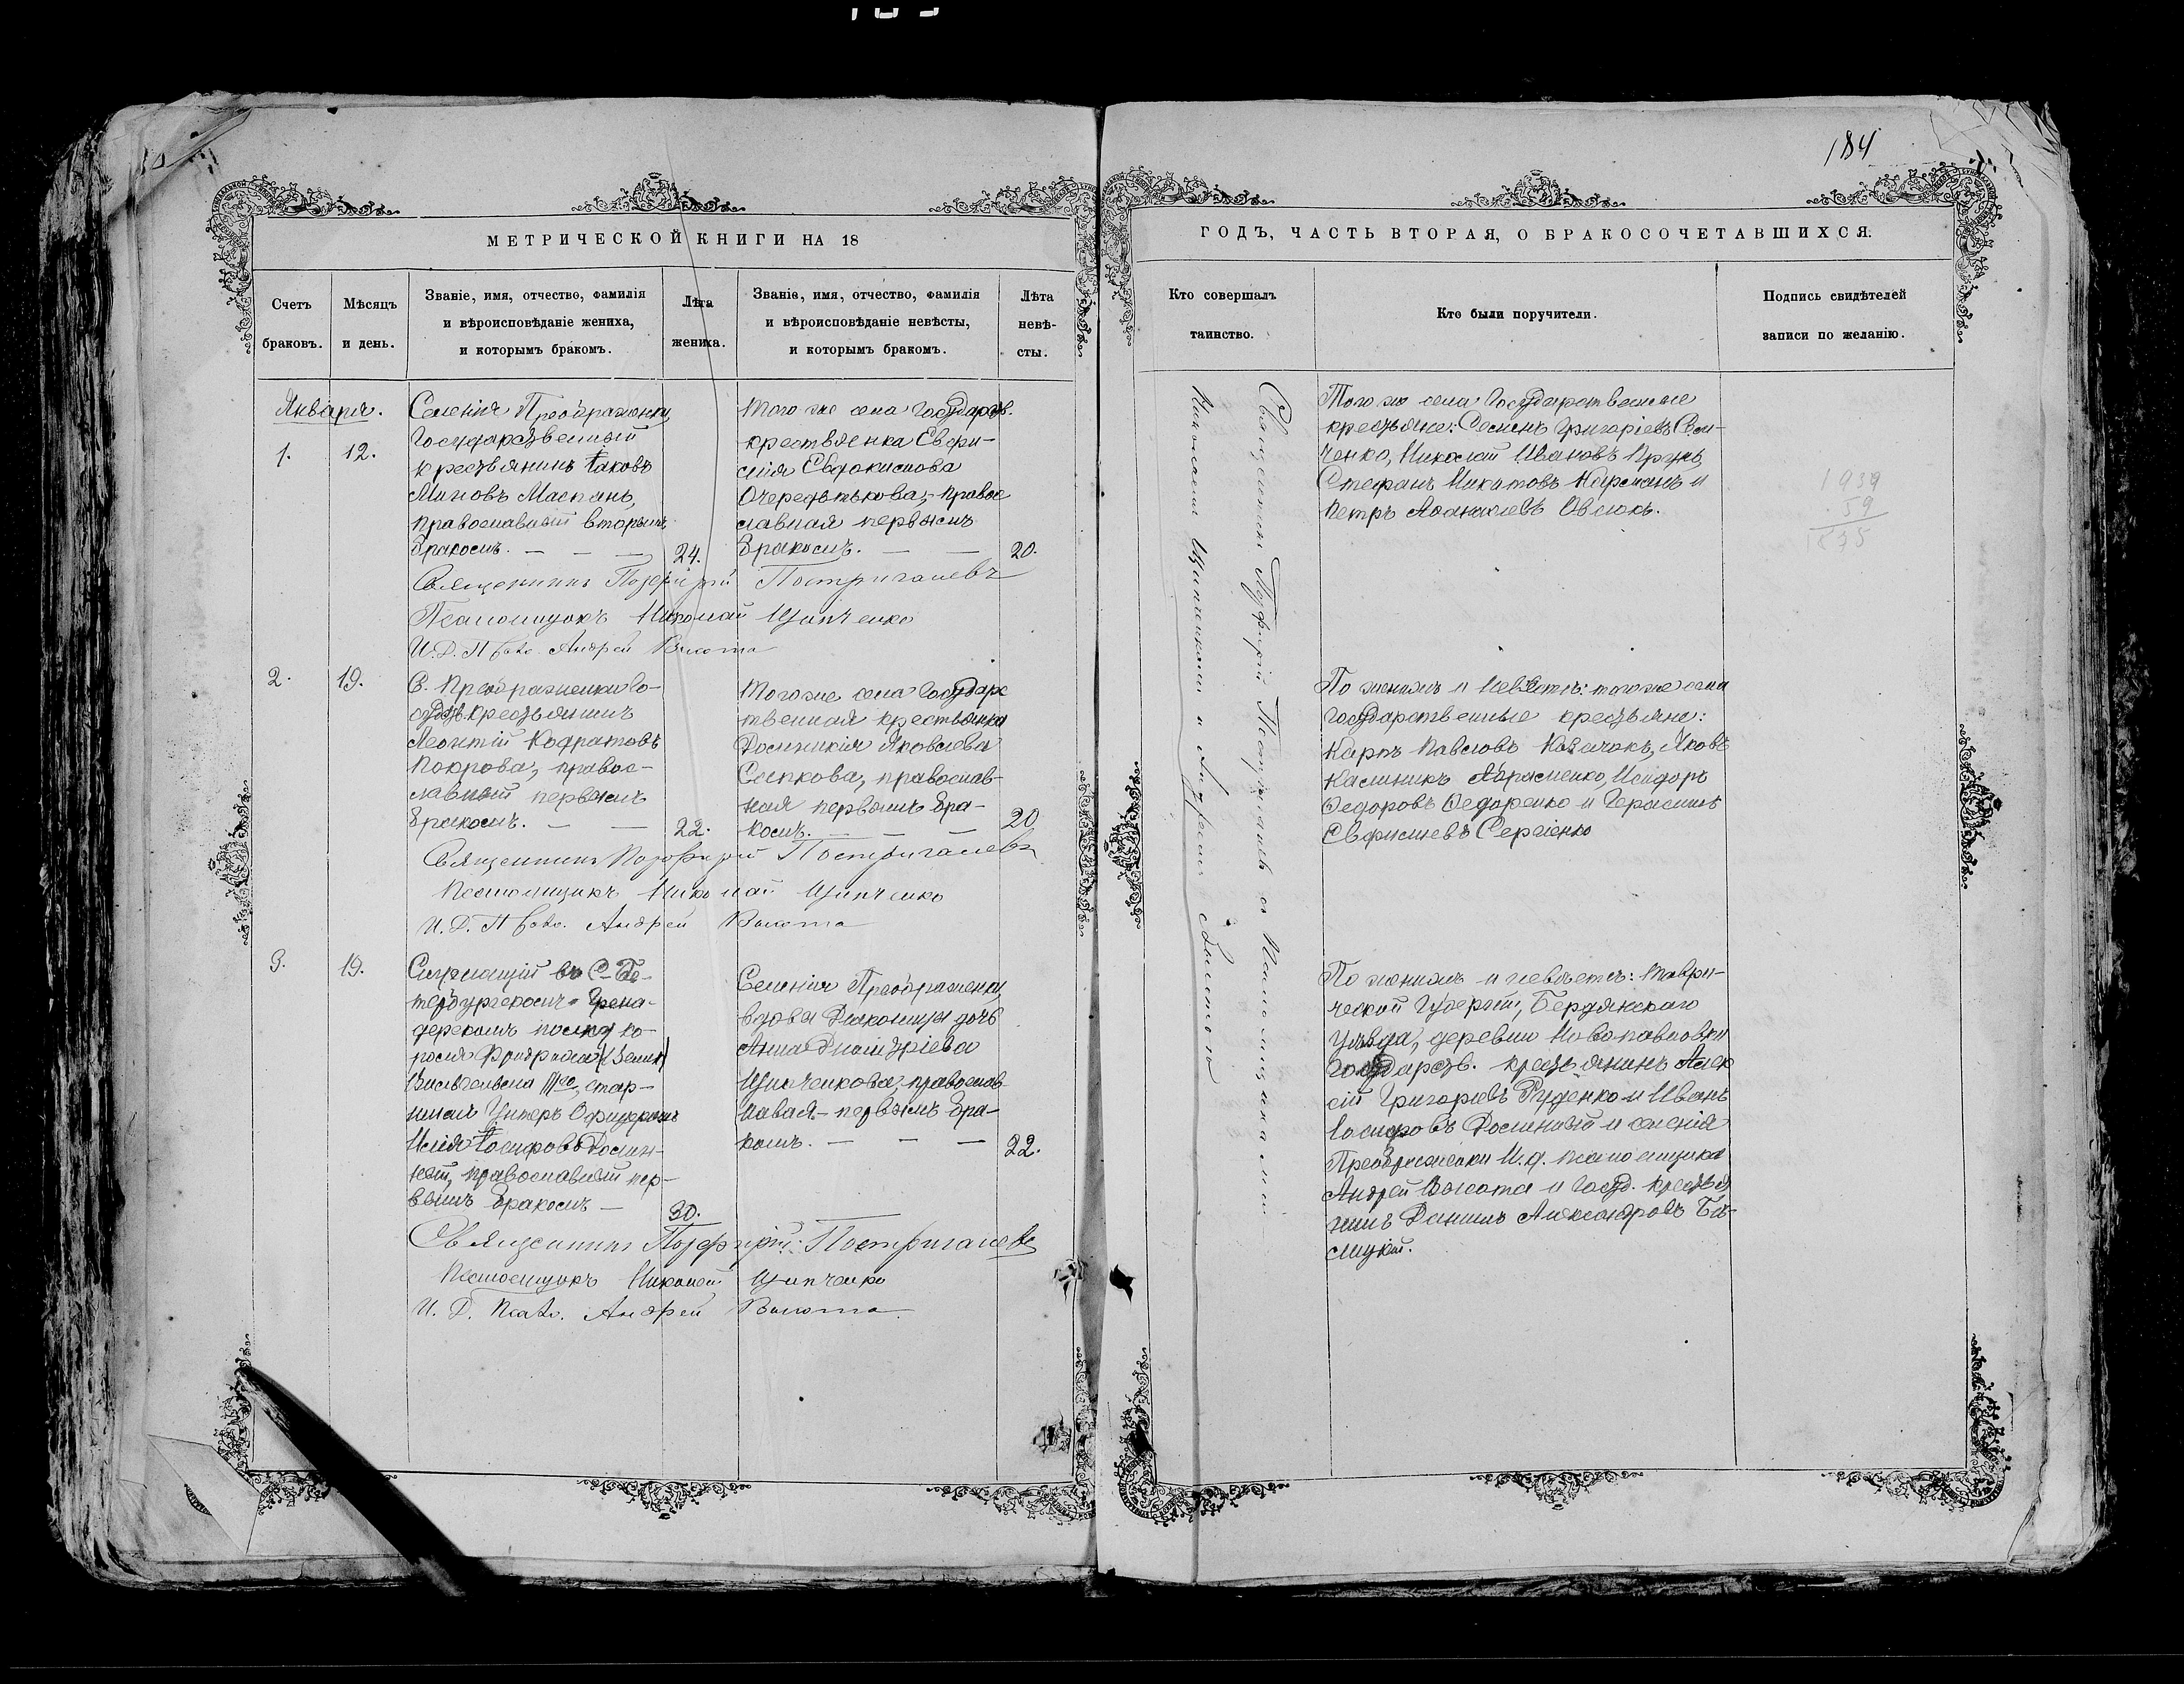 184
МЕТРИЧЕСКОЙ КНИГИ НА 18
Счетъ
браковъ.
Мѣсяцъ
и день.
Званіе, имя, отчество, фамилія
и вѣроисповѣданіе жениха,
и которымъ бракомъ.
Лѣта
жениха.
Званіе, имя, отчество, фамилія
и вѣроисповѣданіе невѣсты,
и которымъ бракомъ.
Лѣта
невѣ-
сты.
Января.
1.
12.
Селенія Преображенки,
Государственный
крестьянинъ Іаковъ
православный вторымъ
бракомъ. — — —
24.
того же села Государств.
крестьянка Евфи-
мія Евдокимова
православная первымъ
бракомъ. — —
20.
Священникъ Порфирій Постригачевъ
Псаломщикъ Николай Ципченко
И. Д. Псало. Андрей Высота
2.
19.
С. Преображенки Го-
сударст. крестьянинъ
Леонтій Кодратовъ
Покрова, правос-
лавный первымъ
бракомъ. — —
22.
того же села Государс
твенная крестьянка
Домникія Яковлева
православ-
ная первымъ бра-
комъ. — — —
20
Священникъ Порфирій Постригачевъ
Псаломщикъ Николай Ципченко
И. Д. Псало. Андрей Высота
3.
19.
Служащій въ С-Пе-
тербургскомъ Грена-
дерскомъ полку ко-
роля Фридриха
Вильгельма IIIго, стар-
шимъ Унтеръ Офицеромъ
Илія Іосифовъ Домин-
православный пер-
вымъ бракомъ —
30.
Селенія Преображенки,
вдовы Дьяконицы дочь
Анна Димитріева
Ципченкова, православ
первымъ бра-
комъ. — — —
22.
Священникъ Порфирій Постригачевъ
Псаломщикъ Николай Ципченко
И. Д. Псало. Андрей Высота
ГОДЪ, ЧАСТЬ ВТОРАЯ, О БРАКОСОЧЕТАВШИХСЯ.
Кто совершалъ
таинство.
Кто были поручители.
Подпись свидѣтелей
записи по желанію.
Священникъ Порфирій Постригачевъ съ Псаломщиками
Николаемъ Ципченкомъ и Андреемъ Высотою
Того же села Государственные
крестьяне: Семенъ Григоріевъ Сем-
ченко, Николай Ивановъ
Стефанъ Никитовъ и
Петръ Аѳанасіевъ Овсюкъ.
1939
59
1875
По женихѣ и невѣстѣ: того же села
Государственные крестьяне:
Карпъ Павловъ Козачокъ, Яковъ
Калиникъ Авраменко, Исидоръ
Ѳедоровъ Ѳедоренко и Герасимъ
Евфиміевъ Сергіенко
По женихѣ и невѣстѣ: Таври-
ческой Губерніи, Бердянскаго
уѣзда, деревни Новопавловки
Государств. крестьянинъ Алек
сій Григоріевъ Руденко и Иванъ
Іосифовъ и селенія
Преображенки И. д. псаломщика
Андрей Высота и Госуд. крестья
нинъ Даніилъ Александровъ Бѣ-
лицкій.